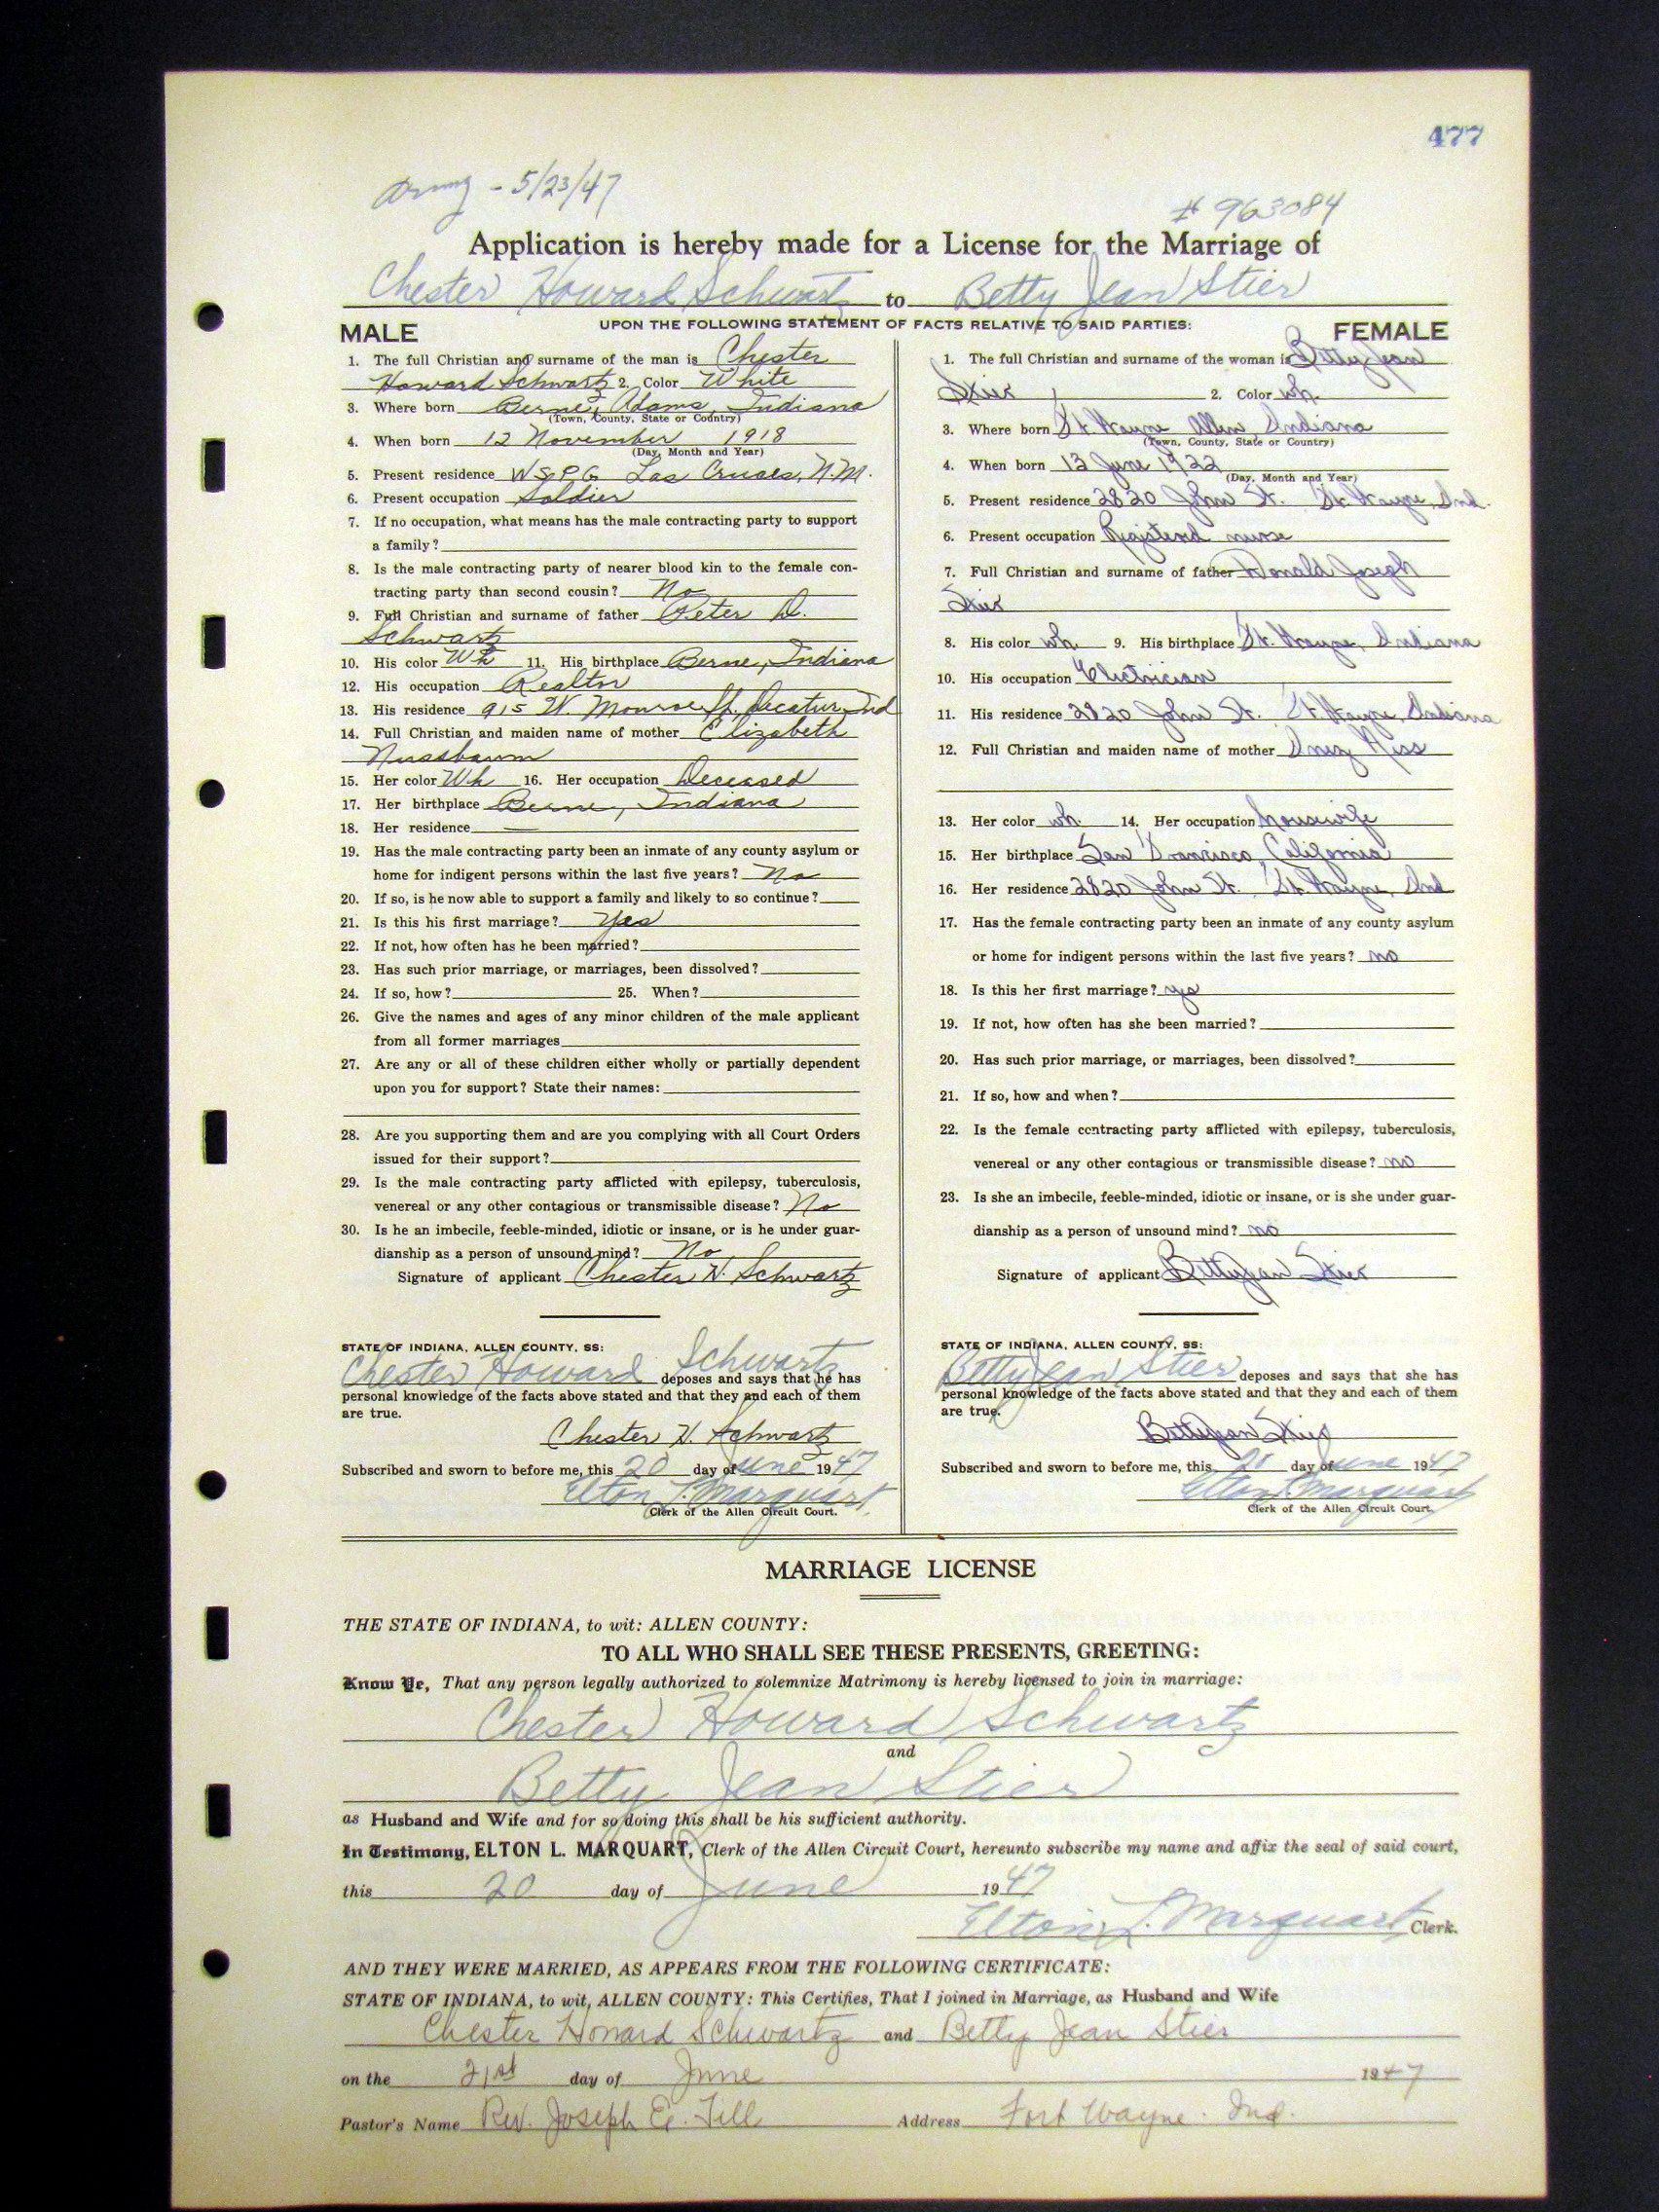 477
Army - 5/23/47
# 963084
Application is hereby made for a License for the Marriage of
Chester Howard Schwartz to Betty Jean Stier
UPON THE FOLLOWING STATEMENT OF FACTS RELATIVE TO SAID PARTIES:
MALE
1. The full Christian and surname of the man is Chester
Howard Schwartz 2. Color White
3. Where born Berne, Adams, Indiana
(Town, County, State or Country)
4. When born 12 November 1918
(Day, Month and Year)
5. Present residence WSPG Las Cruces, N.M.
6. Present occupation Soldier
7. If no occupation, what means has the male contracting party to support
a family?
8. Is the male contracting party of nearer blood kin to the female con-
tracting party than second cousin? No
9. Full Christian and surname of father Peter D.
Schwartz
10. His color Wh 11. His birthplace Berne, Indiana
12. His occupation Realtor
13. His residence 915 W. Monroe St. Decatur, Ind
14. Full Christian and maiden name of mother Elizabeth
Nussbaum
15. Her color Wh 16. Her occupation Deceased
17. Her birthplace Berne, Indiana
18. Her residence —
19. Has the male contracting party been an inmate of any county asylum or
home for indigent persons within the last five years? No
20. If so, is he now able to support a family and likely to so continue?
21. Is this his first marriage? Yes
22. If not, how often has he been married?
23. Has such prior marriage, or marriages, been dissolved?
24. If so, how? 25. When?
26. Give the names and ages of any minor children of the male applicant
from all former marriages
27. Are any or all of these children either wholly or partially dependent
upon you for support? State their names:
28. Are you supporting them and are you complying with all Court Orders
issued for their support?
29. Is the male contracting party afflicted with epilepsy, tuberculosis,
venereal or any other contagious or transmissible disease? No
30. Is he an imbecile, feeble-minded, idiotic or insane, or is he under guar-
dianship as a person of unsound mind? No
Signature of applicant Chester H. Schwartz
STATE OF INDIANA, ALLEN COUNTY, SS:
Chester Howard Schwartz deposes and says that he has
personal knowledge of the facts above stated and that they and each of them
are true.
Chester H. Schwartz
Subscribed and sworn to before me, this 20 day of June 1947
Elton L. Marquart
Clerk of the Allen Circuit Court.
FEMALE
1. The full Christian and surname of the woman is Betty Jean
Stier 2. Color wh.
3. Where born Ft. Wayne Allen Indiana
(Town, County, State or Country)
4. When born 13 June 1922
(Day, Month and Year)
5. Present residence 2820 John St. Ft. Wayne, Ind.
6. Present occupation Registered nurse
7. Full Christian and surname of father Donald Joseph
Stier
8. His color wh 9. His birthplace Ft. Wayne, Indiana
10. His occupation Electrician
11. His residence 2820 John St. Ft. Wayne, Indiana
12. Full Christian and maiden name of mother Inez
13. Her color wh. 14. Her occupation housewife
15. Her birthplace San Francisco, California
16. Her residence 2820 John St. Ft. Wayne, Ind
17. Has the female contracting party been an inmate of any county asylum
or home for indigent persons within the last five years? no
18. Is this her first marriage? yes
19. If not, how often has she been married?
20. Has such prior marriage, or marriages, been dissolved?
21. If so, how and when?
22. Is the female contracting party afflicted with epilepsy, tuberculosis,
venereal or any other contagious or transmissible disease? no
23. Is she an imbecile, feeble-minded, idiotic or insane, or is she under guar-
dianship as a person of unsound mind? no
Signature of applicant Betty Jean Stier
STATE OF INDIANA, ALLEN COUNTY, SS:
Betty Jean Stier deposes and says that she has
personal knowledge of the facts above stated and that they and each of them
are true.
Betty Jean Stier
Subscribed and sworn to before me, this 20 day of June 1947
Elton L. Marquart
Clerk of the Allen Circuit Court.
MARRIAGE LICENSE
THE STATE OF INDIANA, to wit: ALLEN COUNTY:
TO ALL WHO SHALL SEE THESE PRESENTS, GREETING:
Know Ye, That any person legally authorized to solemnize Matrimony is hereby licensed to join in marriage:
Chester Howard Schwartz
and
Betty Jean Stier
as Husband and Wife and for so doing this shall be his sufficient authority.
In Testimony, ELTON L. MARQUART, Clerk of the Allen Circuit Court, hereunto subscribe my name and affix the seal of said court,
this 20 day of June 1947
Elton L. Marquart Clerk.
AND THEY WERE MARRIED, AS APPEARS FROM THE FOLLOWING CERTIFICATE:
STATE OF INDIANA, to wit, ALLEN COUNTY: This Certifies, That I joined in Marriage, as Husband and Wife
Chester Howard Schwartz and Betty Jean Stier
on the 21st day of June 1947
Pastor's Name Rev. Joseph E. Tell Address Fort Wayne. Ind.